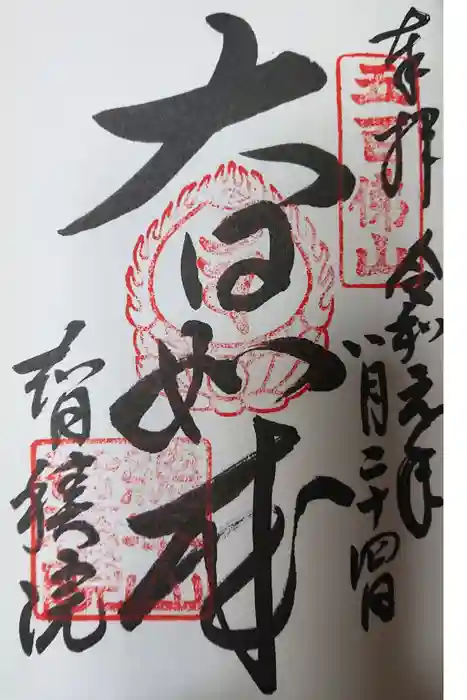 奉拝
五百佛山
令和元年
八月二十四日
大日如来
智積院